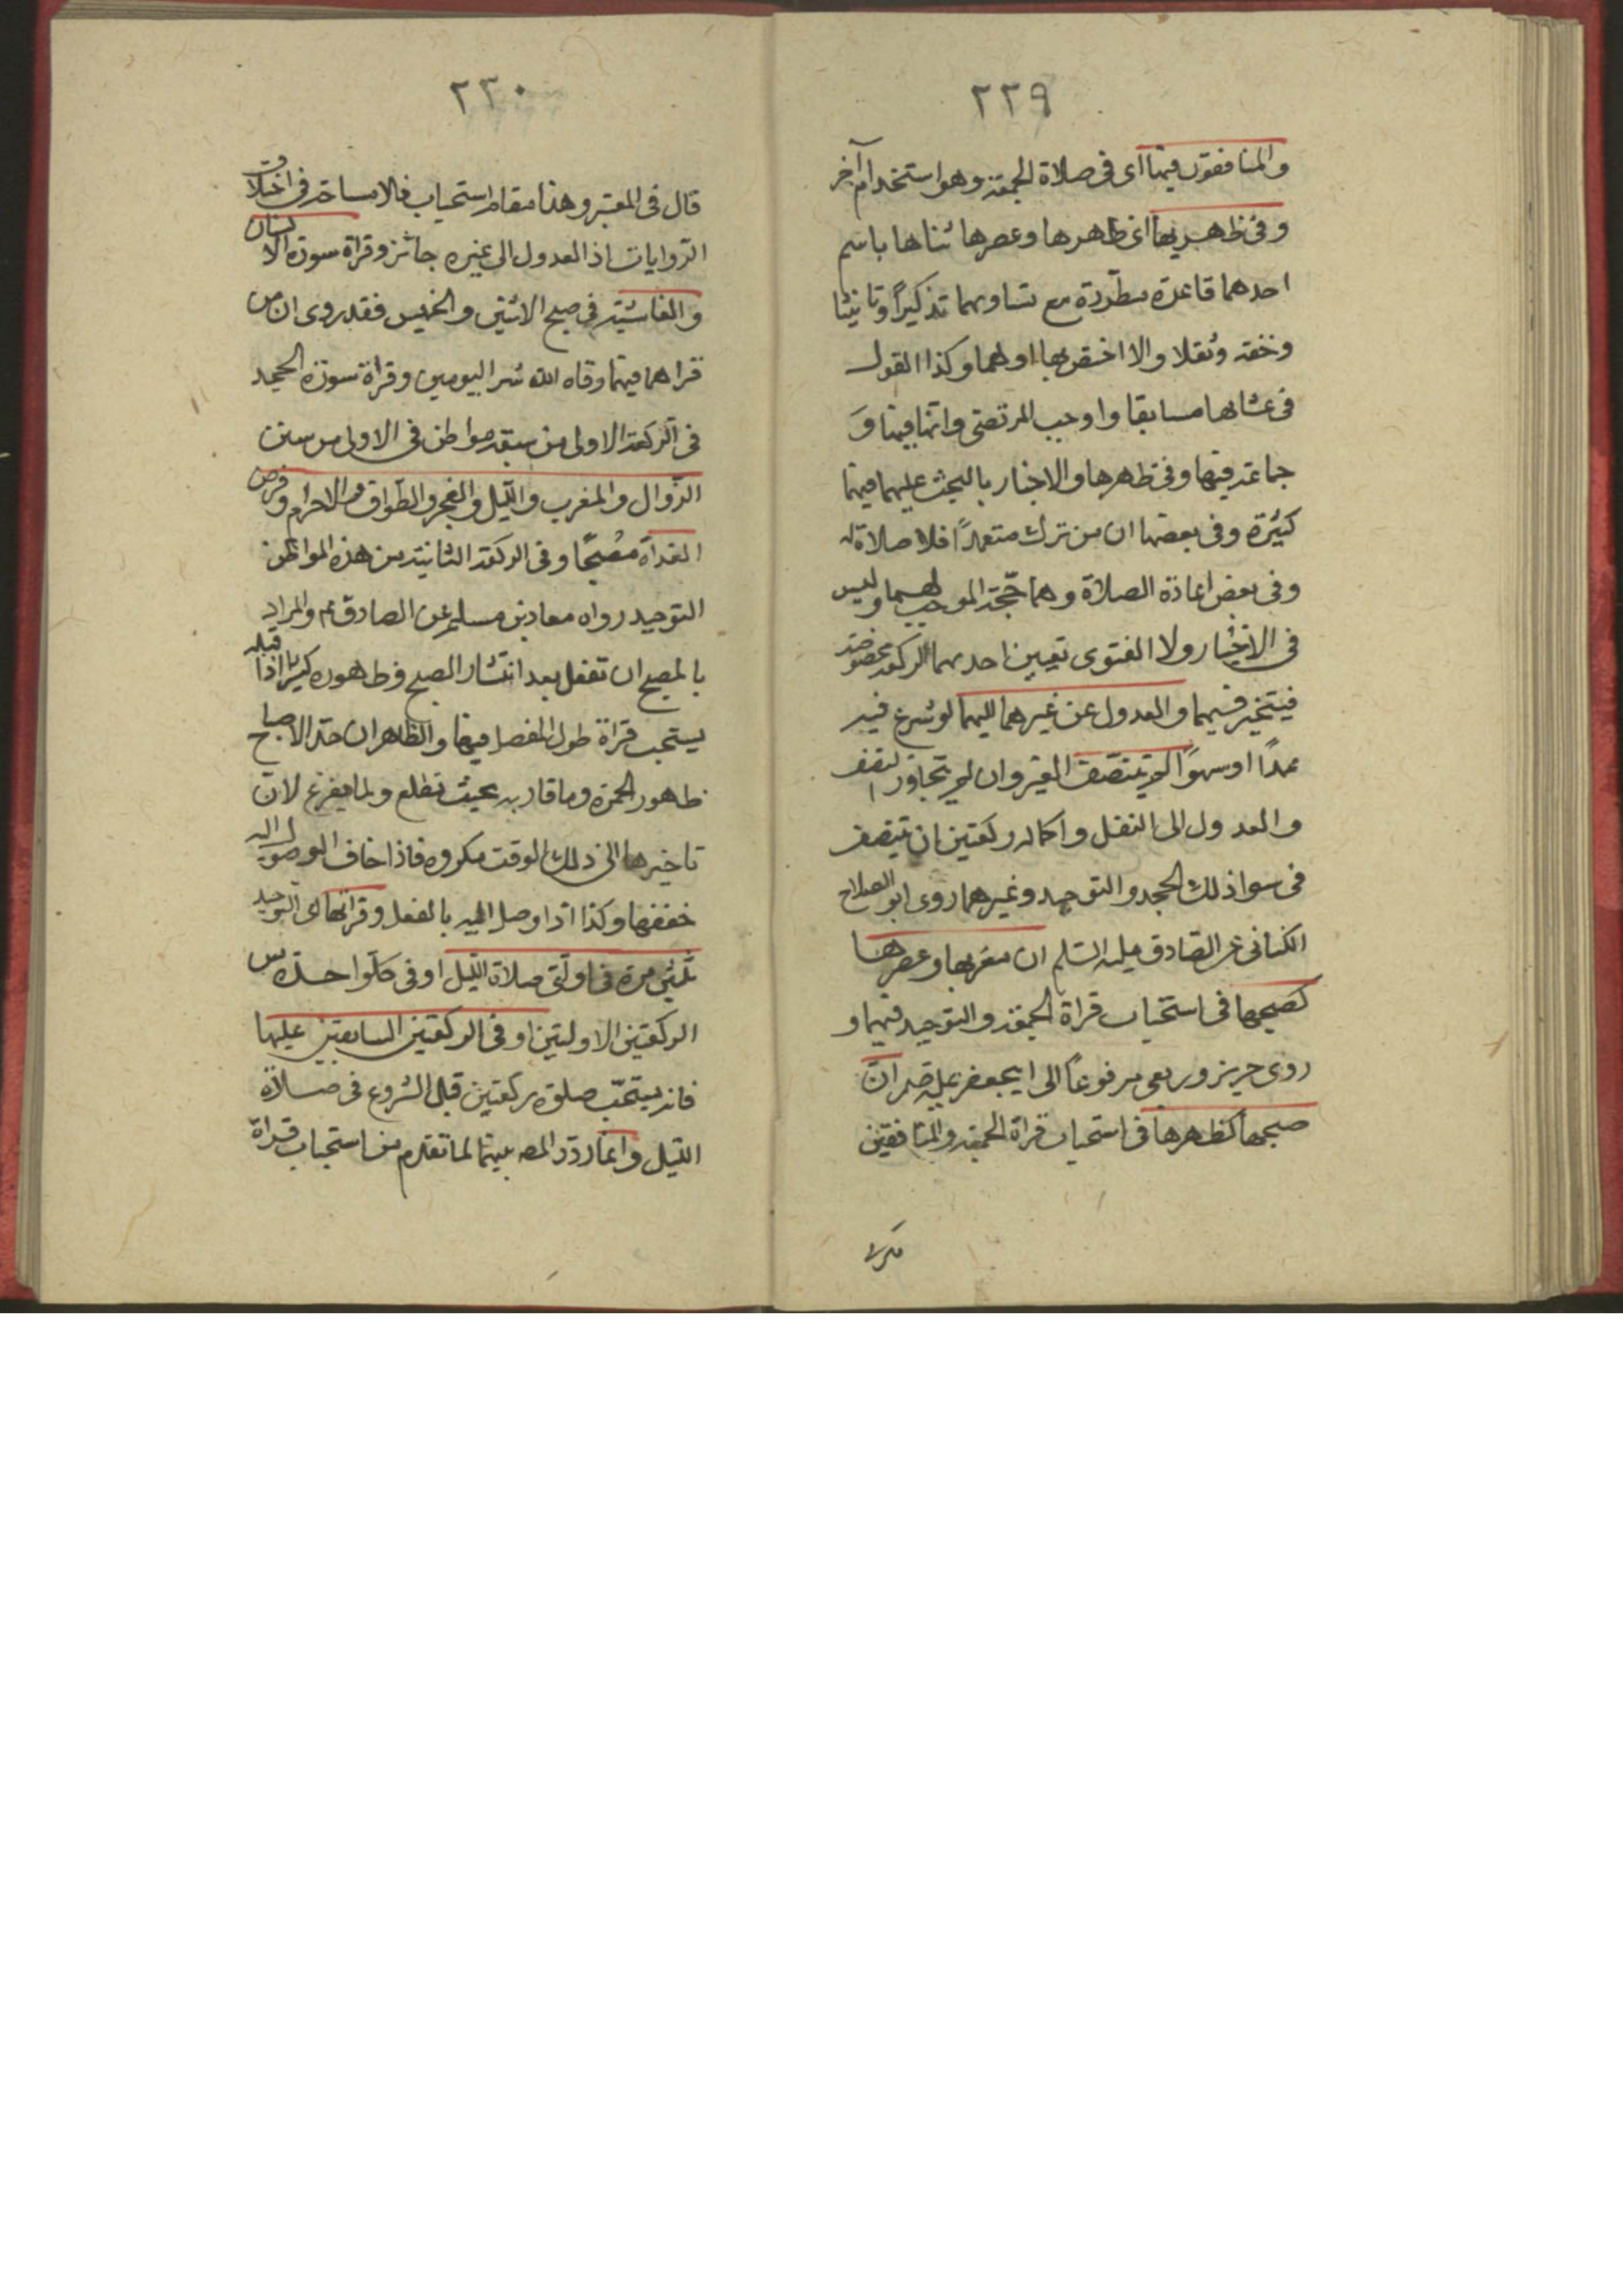 ٢٢٩
والمنافقون فيها اى فى صلاة الجمعة وهو استخدام آخر
وفى ظهريها اى ظهرها وعصرها ثناها باسم
احدهما قاعدة مطردة مع تساويهما تذكيراً وتانيثا
وخفة وثقلا والا اخفهما وكذا القول
فى عشائها سابقا واوجب المرتضى واتباعه
جماعة فيها وفى ظهرها والاخبار بالبحث عليهما فيها
كثيرة وفى بعضها ان من تركه متعمداً فلا صلاة له
وفى بعض اعادة الصلاة وهما حجة الموجب لهما وليس
فى الاخبار ولا الفتوى تعيين احديهما لركعة مخصوصة
فيتخير فيهما والعدول عن غيرهما اليهما لو شرع فيه
عمداً او سهوًا لم يتنصف الغير وان لم يتجاوز النصف
والعدول الى النفل واكماله ركعتين ان تنصف
فى سواذلك الجحد والتوحيد وغيرهما روى ابو الصلاح
الكنانى عن الصادق عليه السلام ان مغربها وعصرها
كصبحها فى استحباب قراة الجمعة والتوحيد فيهما و
روى حريز وربعى مرفوعاً الى ابيجعفر عليه السلام ان
صبحها كظهرها فى استحباب قراة الجمعة والمنافقين
٢٣٠
قال فى المعتبر وهذا مقام استحباب فلا مساحة فى اختلاف
الروايات اذ العدول الى غيره جائز وقراة سورة الانسان
والغاشية فى صبح الاثنين والخميس فقد روى ان من
قراهما فيهما وقاه الله شر اليومين وقراة سورة الجحد
فى الركعة الاولى من سبعة مواطن فى الاولى من سنن
الزوال والمغرب والليل والفجر والطواف والاحرام وفرض
الغداة مصبحًا وفى الركعة الثانية من هذه المواطن
التوحيد رواه معاذ بن مسلم عن الصادق عم والمراد
بالمصبح ان تفعل بعد انتشار الصبح وظهوره كثيرا اذا قبله
يستحب قراة طول المفصل فيها والظاهر ان حد الاصباح
ظهور الحمرة وما قاربه بحيث تطلع ولما يفرغ لان
تاخيرها الى ذلك الوقت مكروه فاذا خاف الوصول اليه
خففها وكذا اذا وصل اليه بالفعل وقراتها اى التوحيد
ثلثين مرة فى اولتى صلاة الليل او فى كل واحدة من
الركعتين الاولتين او فى الركعتين السابقتين عليها
فانه يستحب صلوة ركعتين قبل الشروع فى صلاة
الليل وانما ردد المصـ بينهما لما تقدم من استحباب قراة